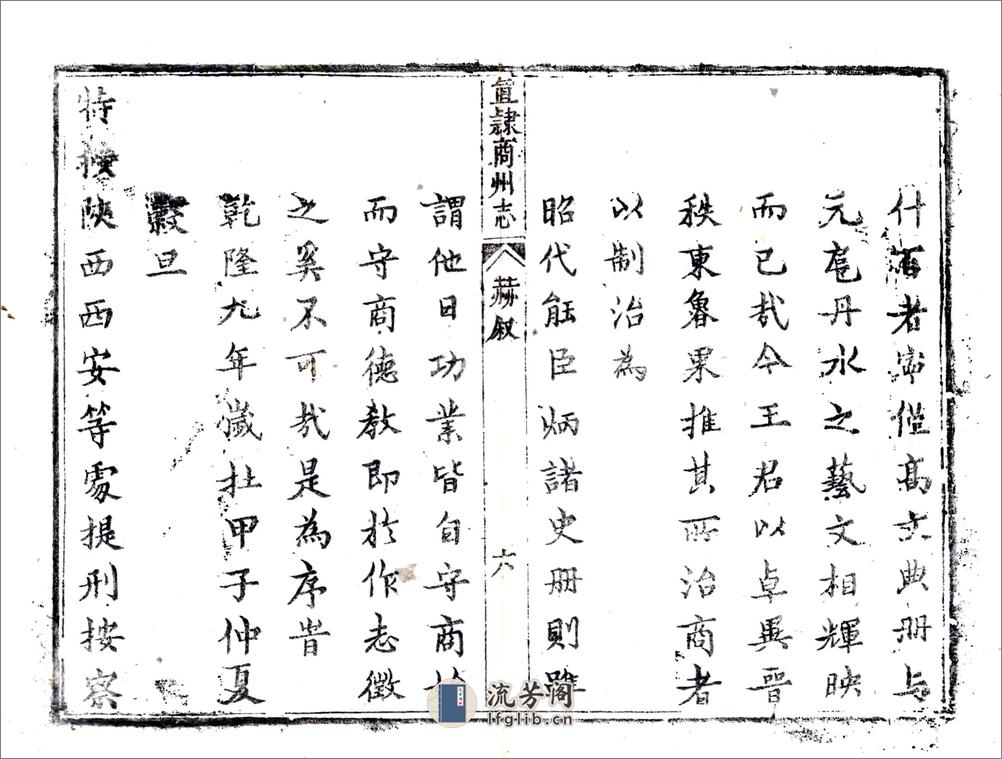 什百者寧僅高文典冊与
元扈丹水之藝文相輝映
而已哉今王君以卓異晉
秩東魯果推其所治商者
以制治為
昭代能臣炳諸史冊則雖
直隸商州志
赫叙
六
謂他日功業皆自守商始
而守商德教即於作志徵
之奚不可哉是為序旹
乾隆九年歲在甲子仲夏
穀旦
特授陝西西安等處提刑按察
流芳阁
lfglib.cn